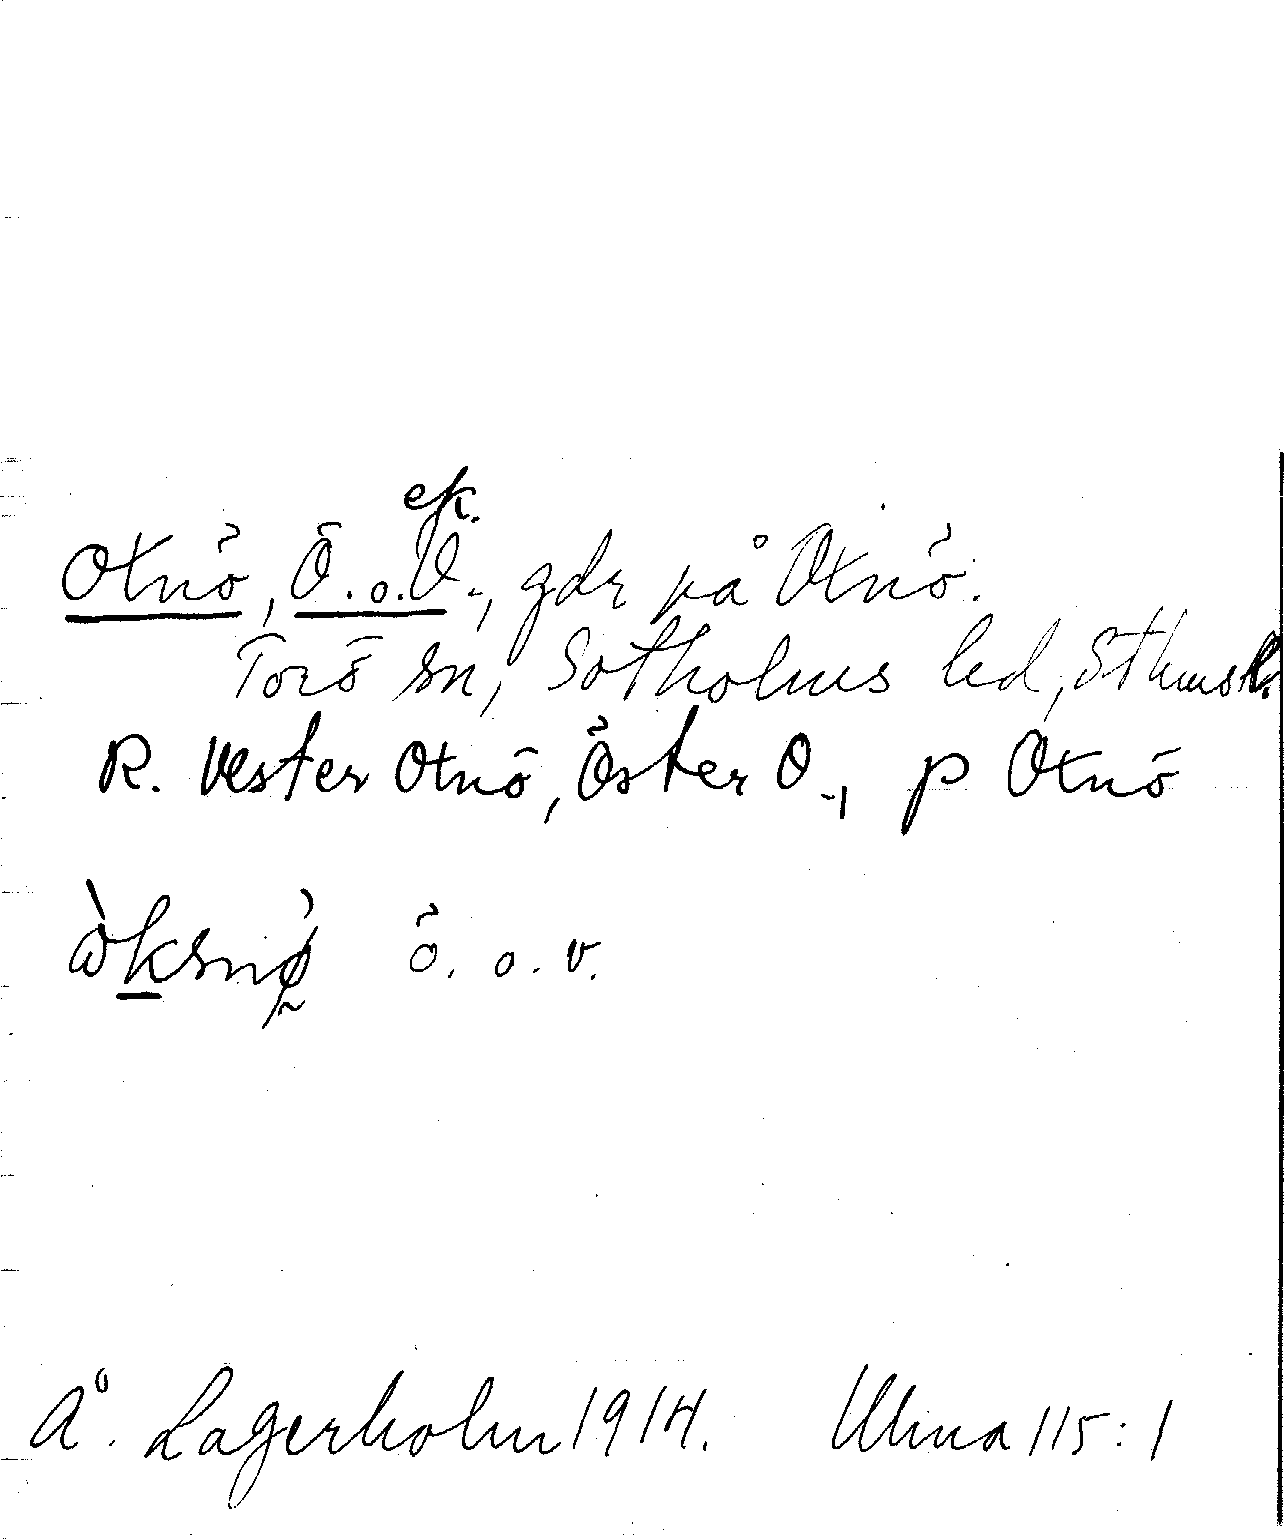 ek.
Otnö, Ö. o. V. -, gdr på Otnö.
Torö sn, Sotholms hd, Sthmsl.
R. Vester Otnö, Öster O -, p Otnö
ö. o. v.
Å. Lagerholm 1914. Ulma 115:1